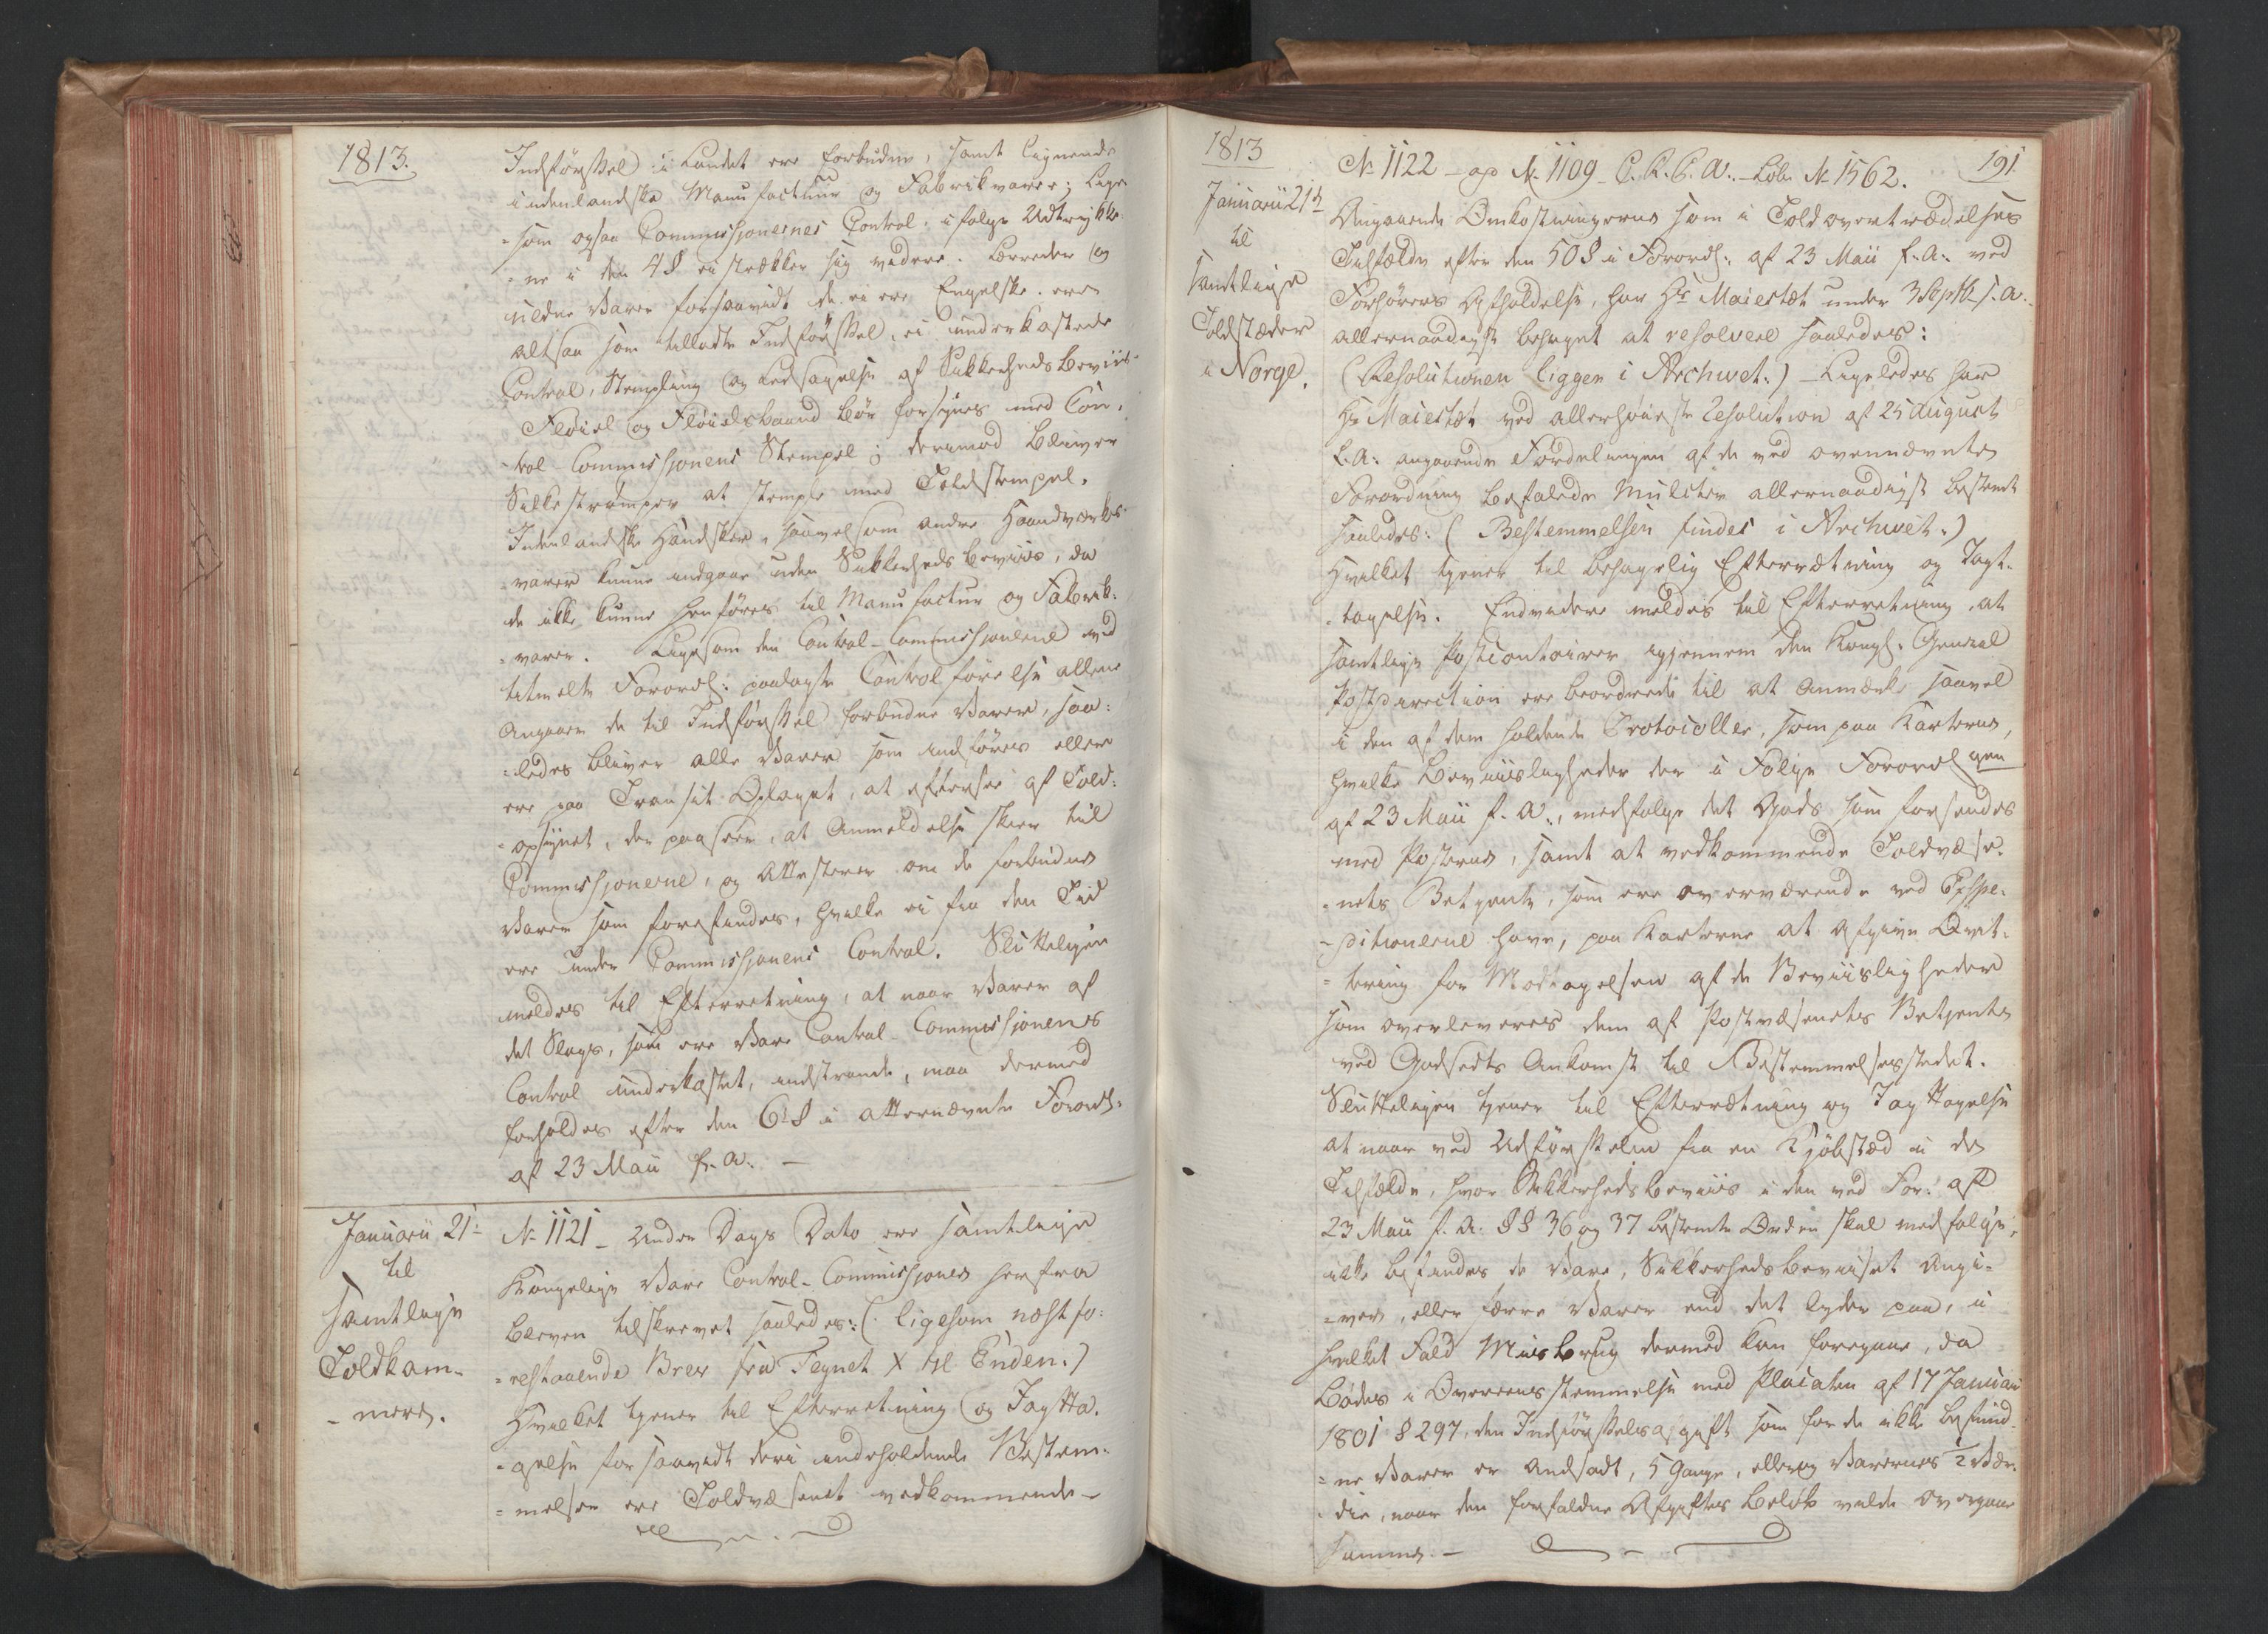 1813.
Indførsel i Landet ere forbudne, samt lignende
indenlandske Manufactuur og Fabrikvarer; Lige
=som ogsaa Commissjonernes Control, ifølge Udtrykke
=ne i den 4 § ei strækker sig videre. Lærreder og
uldne Varer forsaavidt de ei ere Engelske, ere
altsaa som tilladte Indførsel, ei underkastede
Control, Stempling og Ledsagelse af Sikkerheds Beviis
Fløiel og Fløielsbaand bør forsynes med Con,
-trol Commissjonens Stempel; derimod bliver
Silkestrømper at stemple med Toldstempel.
Indenlandske Handsker, saavelsom andre Haandværks
=varer kunne indgaae uden Sikkerheds Beviis, da
de ikke kunne henføres til Manufactur og Fabrik:
=varer. Ligesom den Control-Commissjonerne ved
bemelte Forord: paalagte Controlførelse allene
angaaer de til Indførsel forbudne Varer, saa:
=ledes bliver alle Varer som indføres eller
ere paa Transit Oplaget, at eftersee af Told:
=opsynet, der paaseer, at Anmeldelse skeer til
Commissjonerne, og Attesterer om de forbudne
Varer som forefindes, hvilke ei fra den Tid
ere under Commissjonens Control. Slutteligen
meldes til Efterretning, at naar Varer af
det Slags, som ere Vare Control-Commissjonens
Control underkastet, indstrande, maa dermed
forholdes efter den 61 § i atternævnte Forord:
af 23 Maii f. A. —
Januarii 21:
til
samtlige
Toldkam-
-mere.
No 1121 - Under Dags Dato ere samtlige
Kongelige Vare Control-Commissjoner herfra
bleven tilskrevet saaledes: (ligesom næst fo:
=restaaende Brev fra Tegnet X til Enden.)
Hvilket tjener til Efterretning og Iagtta.
=gelse forsaavidt deri indeholdende Bestem:
=melser ere Toldvæsenet vedkommende —
1813
191
Januarii 21de
til
samtlige
Toldstæder
i Norge.
No 1122 - No 1109 - C.K.C.A. - Lób. No 1562.
Angaaende Omkostningerne som i Toldovertrædelses
Tilfælde efter den 50 § i Forord: af 23 Maii f. A. ved
Forhørers Afholdelse, har Hs Maiestæt under 3 Septb. s. A.
allernaadigst behaget at resolvere saaledes:
(Resolutionen ligger i Archivet:) - Ligeledes har
Hs Maiestæt ved allerhøieste Resolution af 25 August
f. A: angaaende Fordelingen af de ved ovennævnte
Forordning befalede Mulcter allernaadigst bestemt
saaledes: (Bestemmelsen findes i Archivet.)
Hvilket tjener til behagelig Efterretning og Iagt-
-tagelse. Endvidere meldes til Efterretning, at
samtlige Postcontoirer igjennem den Kongl. General
Postdirection ere beordrede til at anmærke saavel
i den af dem holdende Protocoller, som paa Karterne,
hvilke Beviisligheder der i Følge Forordgen
af 23 Maii f. A., medfølge det Gods som forsendes
med Posterne, samt at vedkommende Toldvæse.
=nets Betjente, som ere overværende ved Expe.
-ditionerne have, paa Karterne at afgive Qvit-
=tering for Modtagelsen af de Beviisligheder
som overleveres dem af Postvæsenets Betjente
ved Godsets Ankomst til Bestemmelsesstedet.
Slutteligen tjener til Efterretning og Iagttagelse
at naar ved Udførselen fra en Kjøbstæd i de
Tilfælde, hvor Sikkerheds beviis i den ved For: af
23 Maii f. A. §§ 36 og 37 bestemte Orden skal medfølge,
ikke befindes de Vare, Sikkerhedsbeviiset angi-
=ver, eller færre Varer end det lyder paa, i
hvilket Fald Misbrug dermed kan foregaae, da
bødes i Overeensstemmelse med Placaten af 17 Januari
1801 § 297, den Indførselsafgift som for de ikke befund-
=ne Varer er ansadt, 5 Gange, eller og Varernes ½ Vær.
-die, naar den forfaldne Afgiftes Beløb vilde overgaae
samme. —